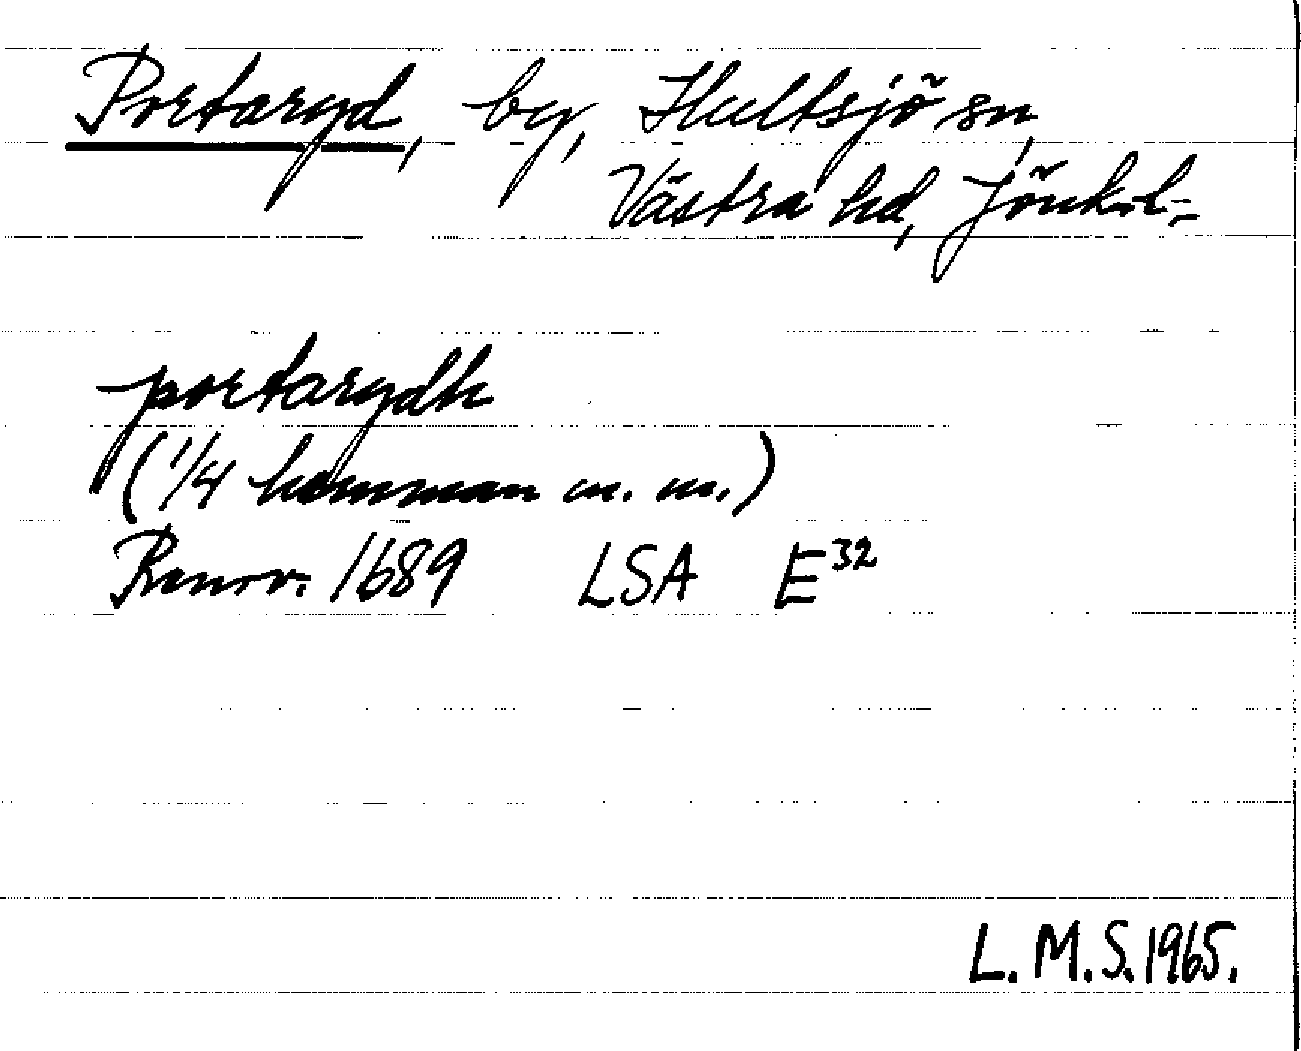 Portaryd, by, Hultsjö sn,
Västra hd, Jönk.l.
portarydh
(1/4 hemman m. m.)
Renov. 1689 LSA E32
L. M. S. 1965.